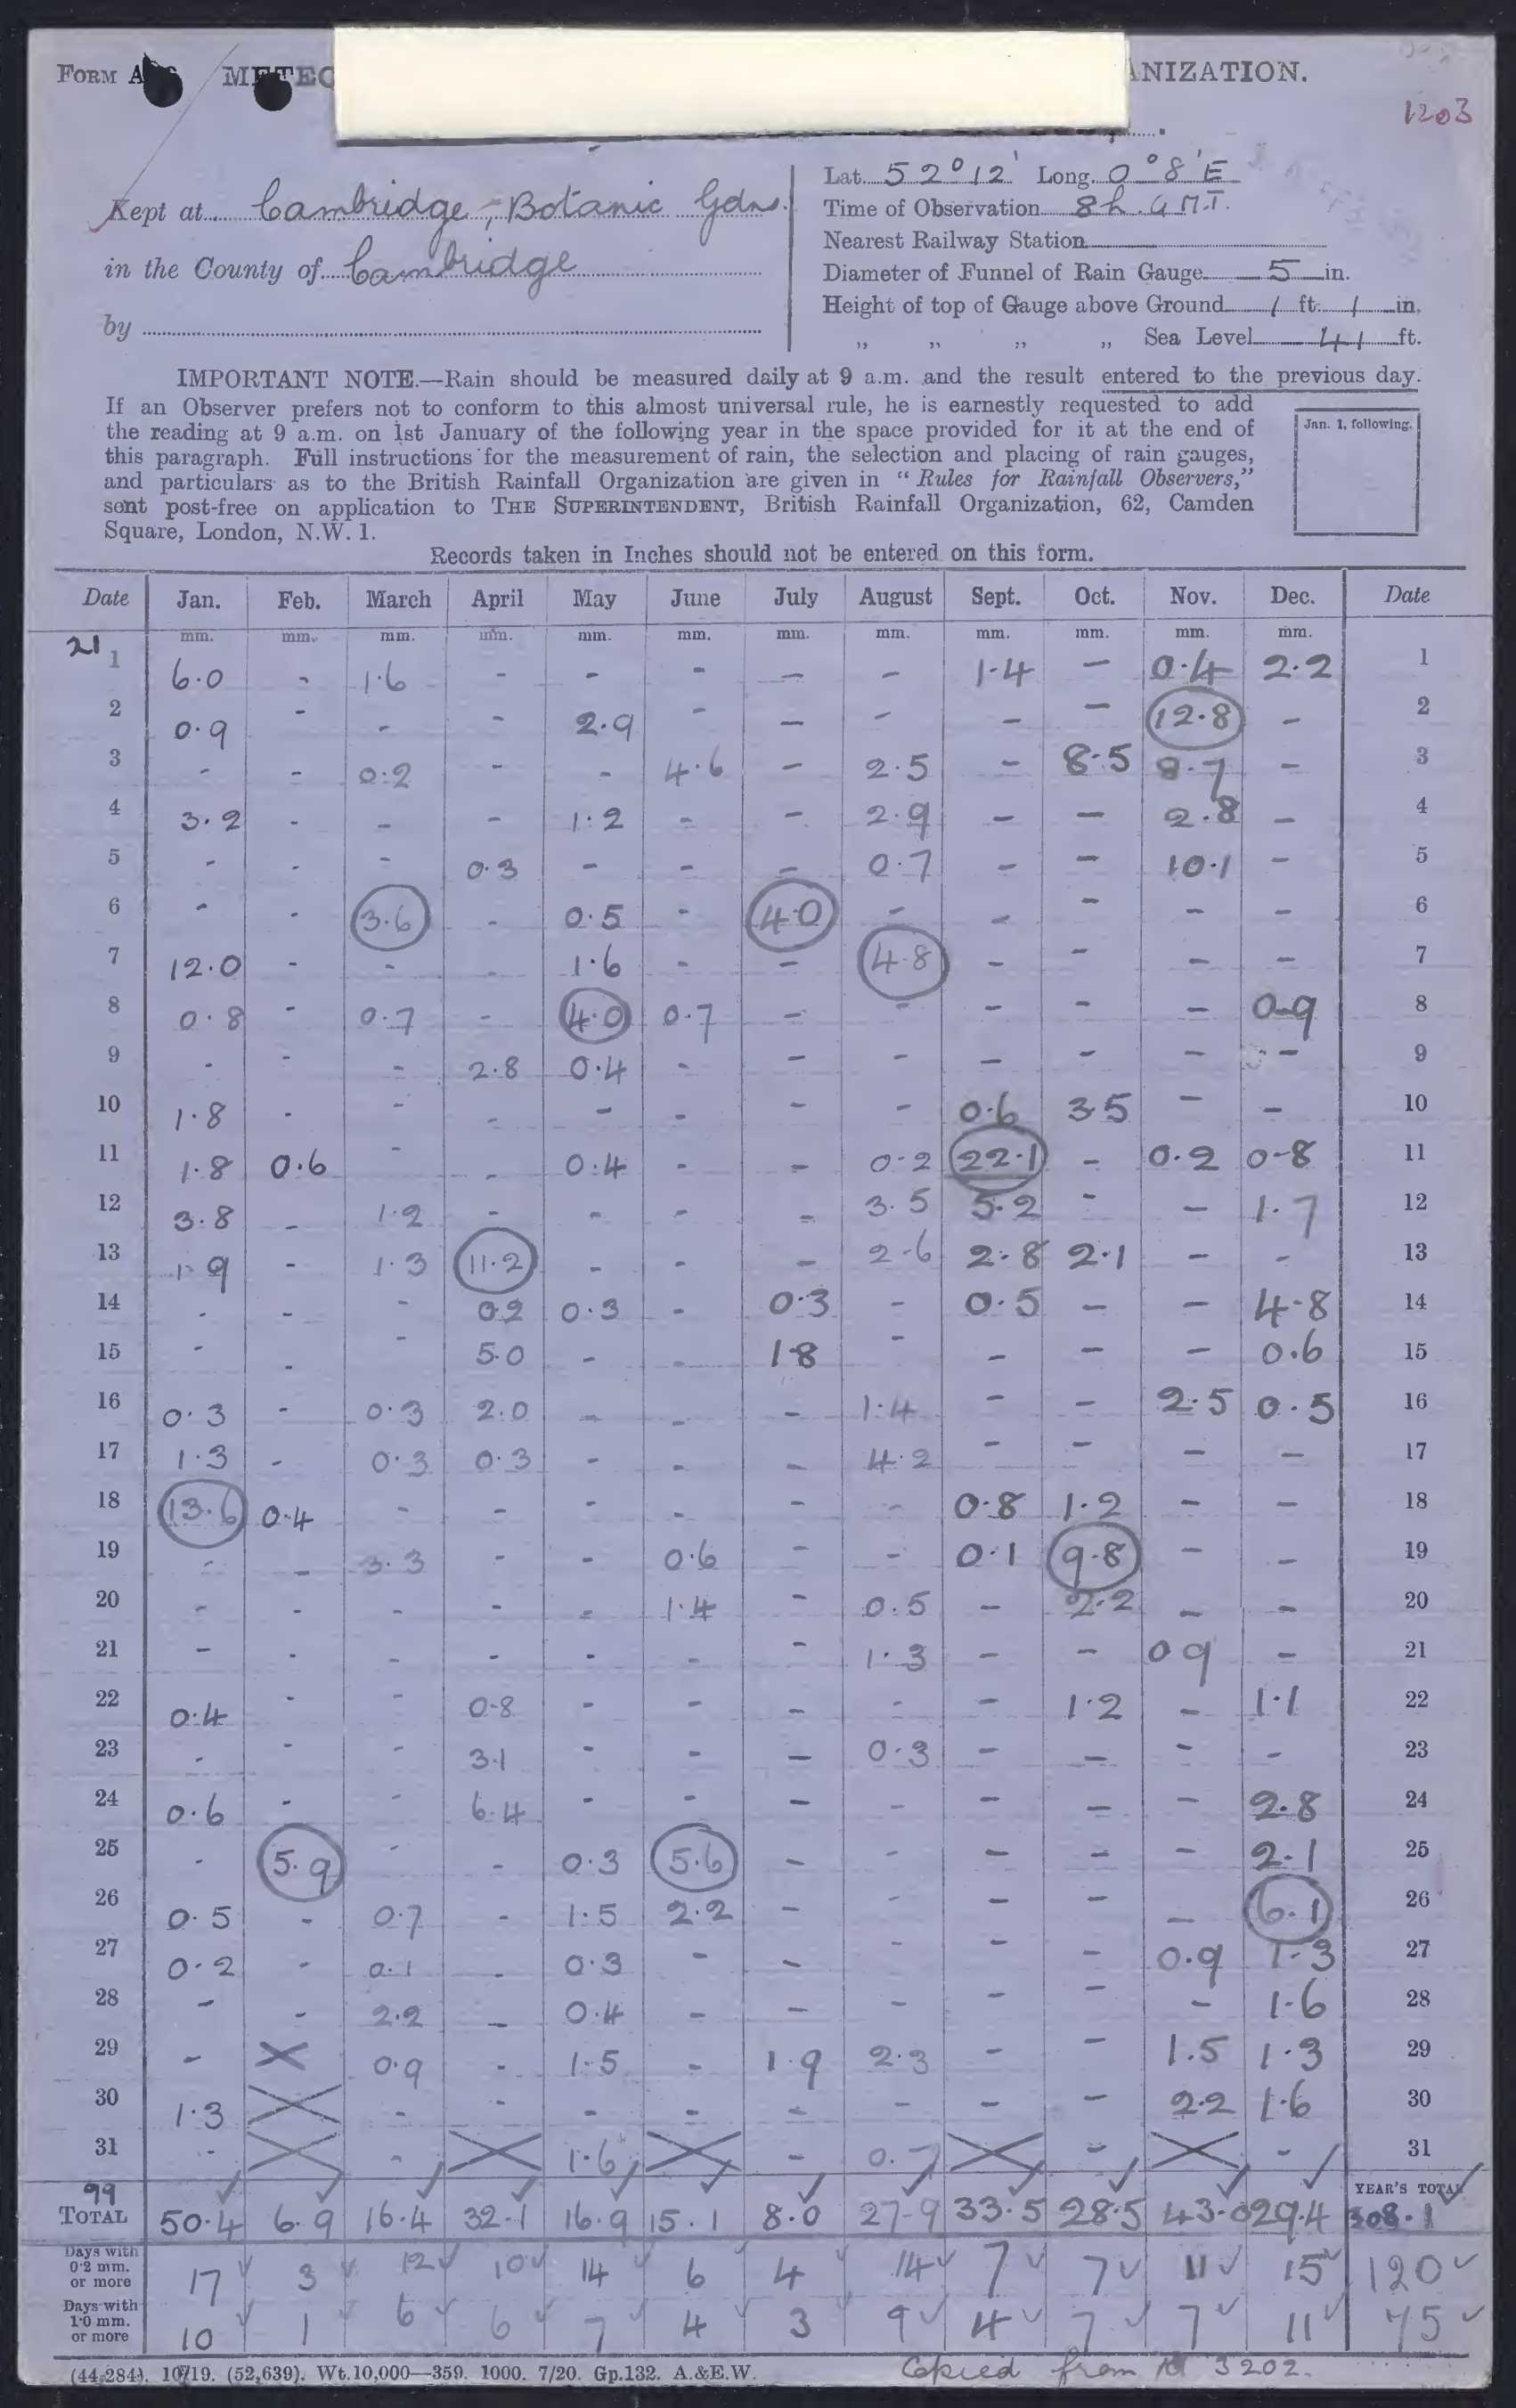 FORM A METEO ANIZATION.
1203
Kept at Cambridge, Botanic Gdns.
in the County of Cambridge
by
Lat. 52°12' Long. 0°8'E
Time of Observation 8h. G.M.T.
Nearest Railway Station
Diameter of Funnel of Rain Gauge 5 in.
Height of top of Gauge above Ground 1 ft. 1 in.
„ „ „ „ Sea Level 41 ft.
IMPORTANT NOTE.—Rain should be measured daily at 9 a.m. and the result entered to the previous day.
If an Observer prefers not to conform to this almost universal rule, he is earnestly requested to add
the reading at 9 a.m. on 1st January of the following year in the space provided for it at the end of
this paragraph. Full instructions for the measurement of rain, the selection and placing of rain gauges,
and particulars as to the British Rainfall Organization are given in “Rules for Rainfall Observers,”
sent post-free on application to THE SUPERINTENDENT, British Rainfall Organization, 62, Camden
Square, London, N.W. 1.
Jan. 1, following.
Records taken in Inches should not be entered on this form.
Date Jan. Feb. March April May June July August Sept. Oct. Nov. Dec. Date
21 mm. mm. mm. mm. mm. mm. mm. mm. mm. mm. mm. mm.
1 6.0 - 1.6 - - - - - 1.4 - 0.4 2.2 1
2 0.9 - - - 2.9 - - - - - 12.8 - 2
3 - - 0.2 - - 4.6 - 2.5 - 8.5 8.7 - 3
4 3.2 - - - 1.2 - - 2.9 - - 2.8 - 4
5 - - - 0.3 - - - 0.7 - - 10.1 - 5
6 - - 3.6 - 0.5 - 4.0 - - - - - 6
7 12.0 - - - 1.6 - - 4.8 - - - - 7
8 0.8 - 0.7 - 4.0 0.7 - - - - - 0.9 8
9 - - - 2.8 0.4 - - - - - - - 9
10 1.8 - - - - - - - 0.6 3.5 - - 10
11 1.8 0.6 - - 0.4 - - 0.2 22.1 - 0.2 0.8 11
12 3.8 - 1.2 - - - - 3.5 5.2 - - 1.7 12
13 1.9 - 1.3 11.2 - - - 2.6 2.8 2.1 - - 13
14 - - - 0.2 0.3 - 0.3 - 0.5 - - 4.8 14
15 - - - 5.0 - - 1.8 - - - - 0.6 15
16 0.3 - 0.3 2.0 - - - 1.4 - - 2.5 0.5 16
17 1.3 - 0.3 0.3 - - - 4.2 - - - - 17
18 13.6 0.4 - - - - - - 0.8 1.2 - - 18
19 - - 3.3 - - 0.6 - - 0.1 9.8 - - 19
20 - - - - - 1.4 - 0.5 - 2.2 - - 20
21 - - - - - - - 1.3 - - 0 9 - 21
22 0.4 - - 0.8 - - - - - 1.2 - 1.1 22
23 - - - 3.1 - - - 0.3 - - - - 23
24 0.6 - - 6.4 - - - - - - - 2.8 24
25 - 5.9 - - 0.3 5.6 - - - - - 2.1 25
26 0.5 - 0.7 - 1.5 2.2 - - - - - 6.1 26
27 0.2 - 0.1 - 0.3 - - - - - 0.9 1.3 27
28 - - 2.2 - 0.4 - - - - - - 1.6 28
29 - × 0.9 - 1.5 - 1.9 2.3 - - 1.5 1.3 29
30 1.3 × - - - - - - - - 2.2 1.6 30
31 - × - × 1.6 × - 0.7 × - × - 31
99 YEAR'S TOTAL
TOTAL 50.4 6.9 16.4 32.1 16.9 15.1 8.0 27.9 33.5 28.5 43.0 29.4 308.1
Days with
0·2 mm.
or more 17 3 12 10 14 6 4 14 7 7 11 15 120
Days with
1·0 mm.
or more 10 1 6 6 7 4 3 9 4 7 7 11 75
(44,284). 10/19. (52,639). Wt.10,000—359. 1000. 7/20. Gp.132. A.&E.W.
Copied from 3202.